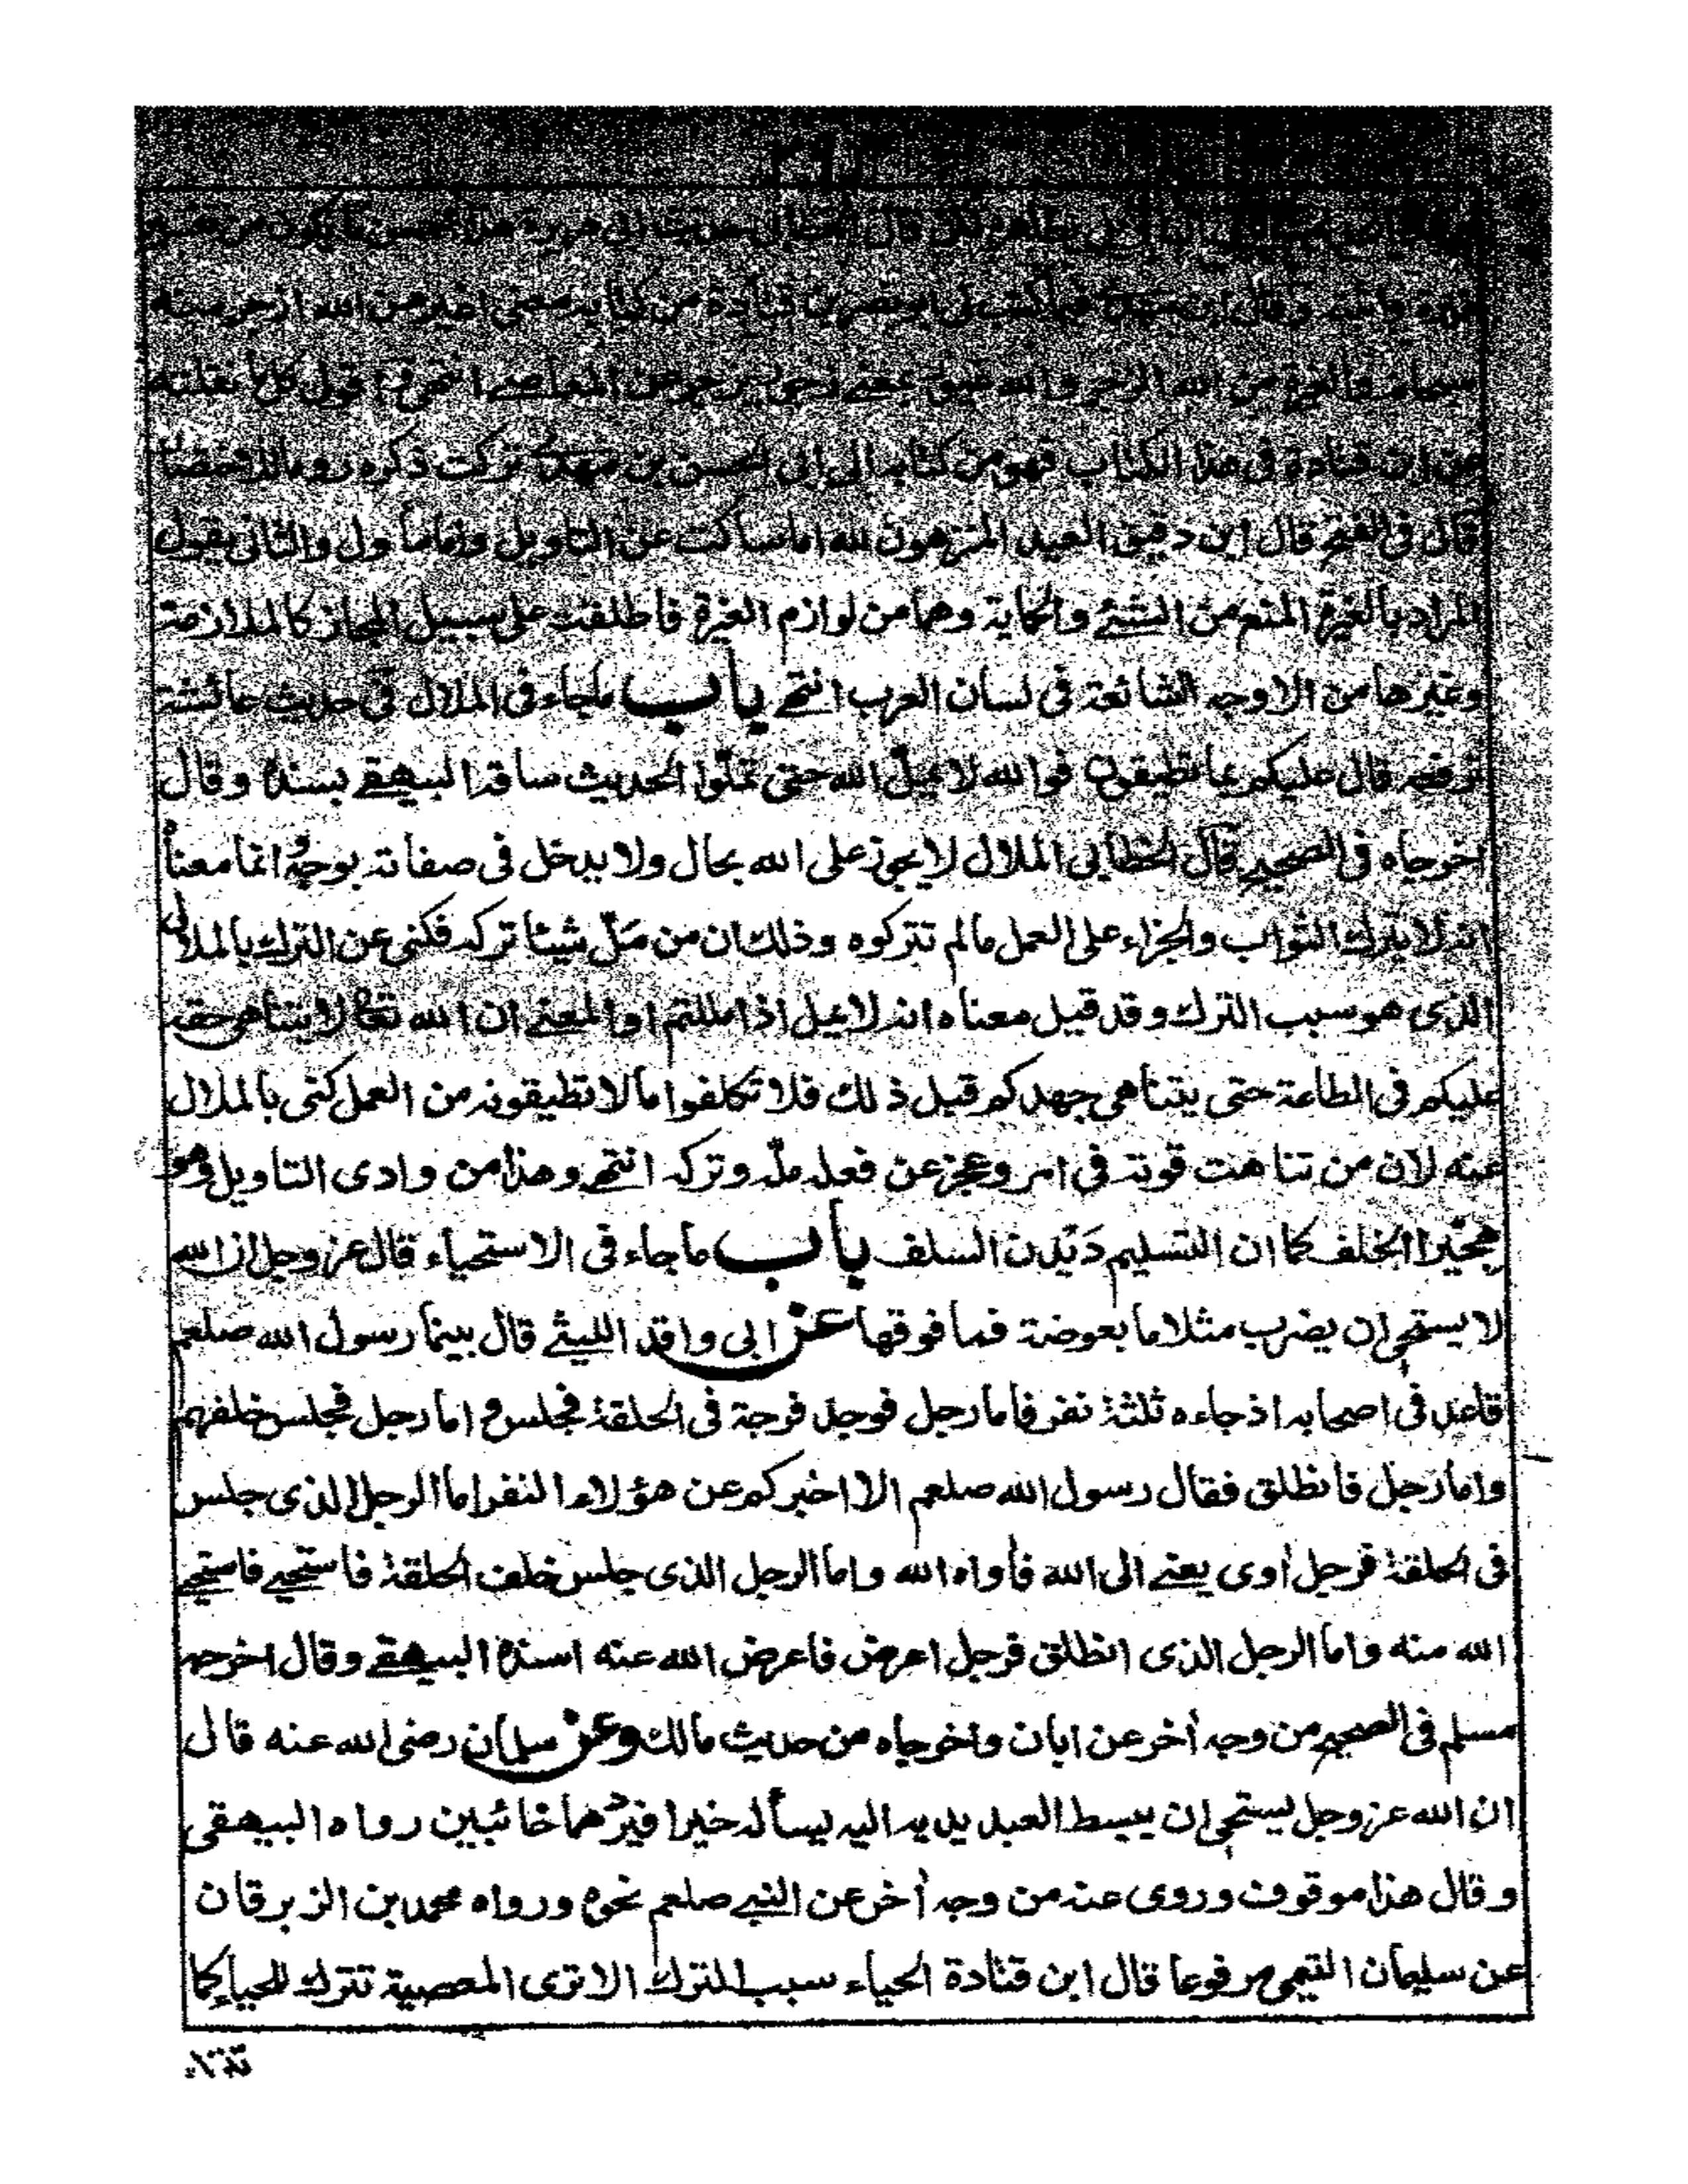 قال الخطابي
وقال ابن من كتابه معنى اغير من الله ازجر منه
والغيرة من الله الزجر والله غيور بمعنى زجور يزجر عن المعاصى انتهى قول كل ما نقلته
عن ابن قتادة فى هذا الكتاب فهو من كتابه الى ابى الحسن بن مهدى تركت ذكره
قال فى الفتح قال ابن دقيق العيد المنزهون لله اما ساكت عن التاويل واما ماول والثانى يقول
المراد بالغيرة المنع من الشئ والحماية وهما من لوازم الغيرة فاطلقت على سبيل المجاز كالملازمة
وغيرها من الاوجه الشائعة فى لسان العرب انتهى باب ماجاء فى الملال فى حديث عائشة
ترفعه قال عليكم بما تطيقون فوالله لا يملّ الله حتى تملّوا الحديث ساقه البيهقى بسنده وقال
اخرجاه فى الصحيح قال الخطابى الملال لا يجوز على الله بحال ولا يدخل فى صفاته بوجه وانما معناه
انه لا يترك الثواب والجزاء على العمل مالم تتركوه وذلك ان من مَلّ شيئا تركه فكنى عن الترك بالملال
الذى هو سبب الترك وقد قيل معناه انه لا يمل اذا مللتم او المعنى ان الله تعالى لا يتناهى حقه
عليكم فى الطاعة حتى يتناهى جهدكم قبل ذلك فلا تكلفوا مالا تطيقونه من العمل كنى بالملال
عنه لان من تناهت قوته فى امر وعجز عن فعله ملّه وتركه انتهى وهذا من وادى التاويل وهو
هجيرا الخلف كما ان التسليم دَيْدن السلف باب ماجاء فى الاستحياء قال عز وجل ان الله
لا يستحى ان يضرب مثلا ما بعوضة فما فوقها عن ابى واقد الليثى قال بينما رسول الله صلعم
قاعد فى اصحابه اذ جاءه ثلثة نفر فاما رجل فوجد فرجة فى الحلقة فجلس و اما رجل فجلس خلفهم
واما رجل فانطلق فقال رسول الله صلعم الا اخبركم عن هؤلاء النفر اما الرجل الذى جلس
فى الحلقة فرجل أوى يعنى الى الله فأواه الله واما الرجل الذى جلس خلف الحلقة فاستحيى فاستحيى
الله منه واما الرجل الذى انطلق فرجل اعرض فاعرض الله عنه اسنده البيهقى وقال اخرجه
مسلم فى الصحيح من وجه أخر عن ابان واخرجاه من حديث مالك وعن سلمان رضى الله عنه قال
ان الله عز وجل ليستحى ان يبسط العبد يديه اليه يسأله خيرا فيردّهما خائبين رواه البيهقى
وقال هذا موقوف وروى عنه من وجه أخر عن النبى صلعم نحوه ورواه محمد بن الزبرقان
عن سليمان التيمى مرفوعا قال ابن قتادة الحياء سبب للترك الا ترى المعصية تترك للحياء كما